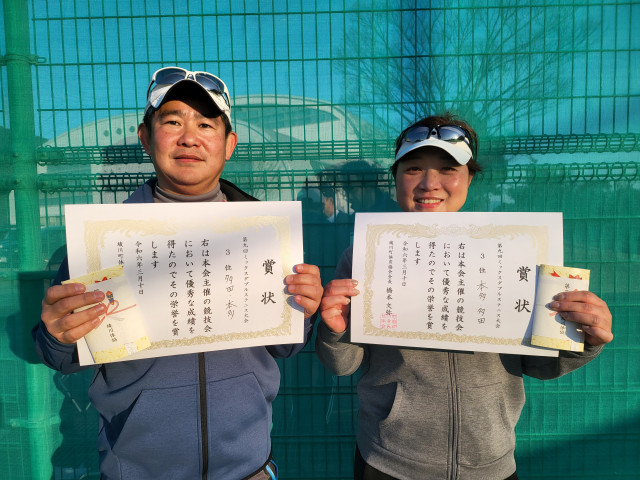 賞状
第九回ミックスダブルステニス大会
3位 多田 本多
右は本会主催の競技会
において優秀な成績を
得たのでその栄誉を賞
します
令和六年三月十日
賞状
第九回ミックスダブルステニス大会
3位 本多 多田
右は本会主催の競技会
において優秀な成績を
得たのでその栄誉を賞
します
令和六年三月十日